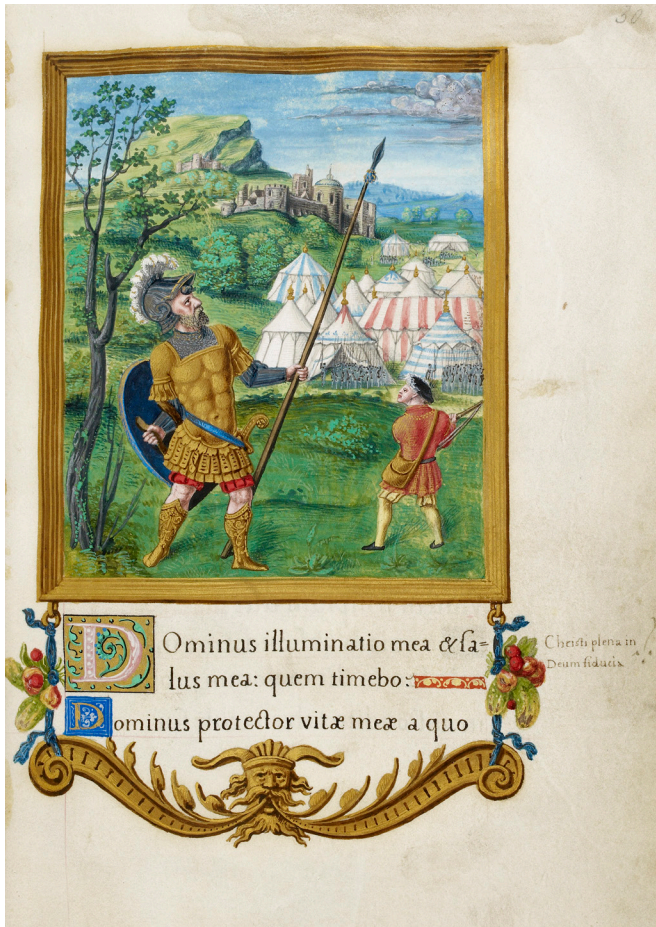 30
Dominus illuminatio mea & sa=
lus mea: quem timebo:
Dominus protector vitæ meæ a quo
Christi plena in
Deum fiducia